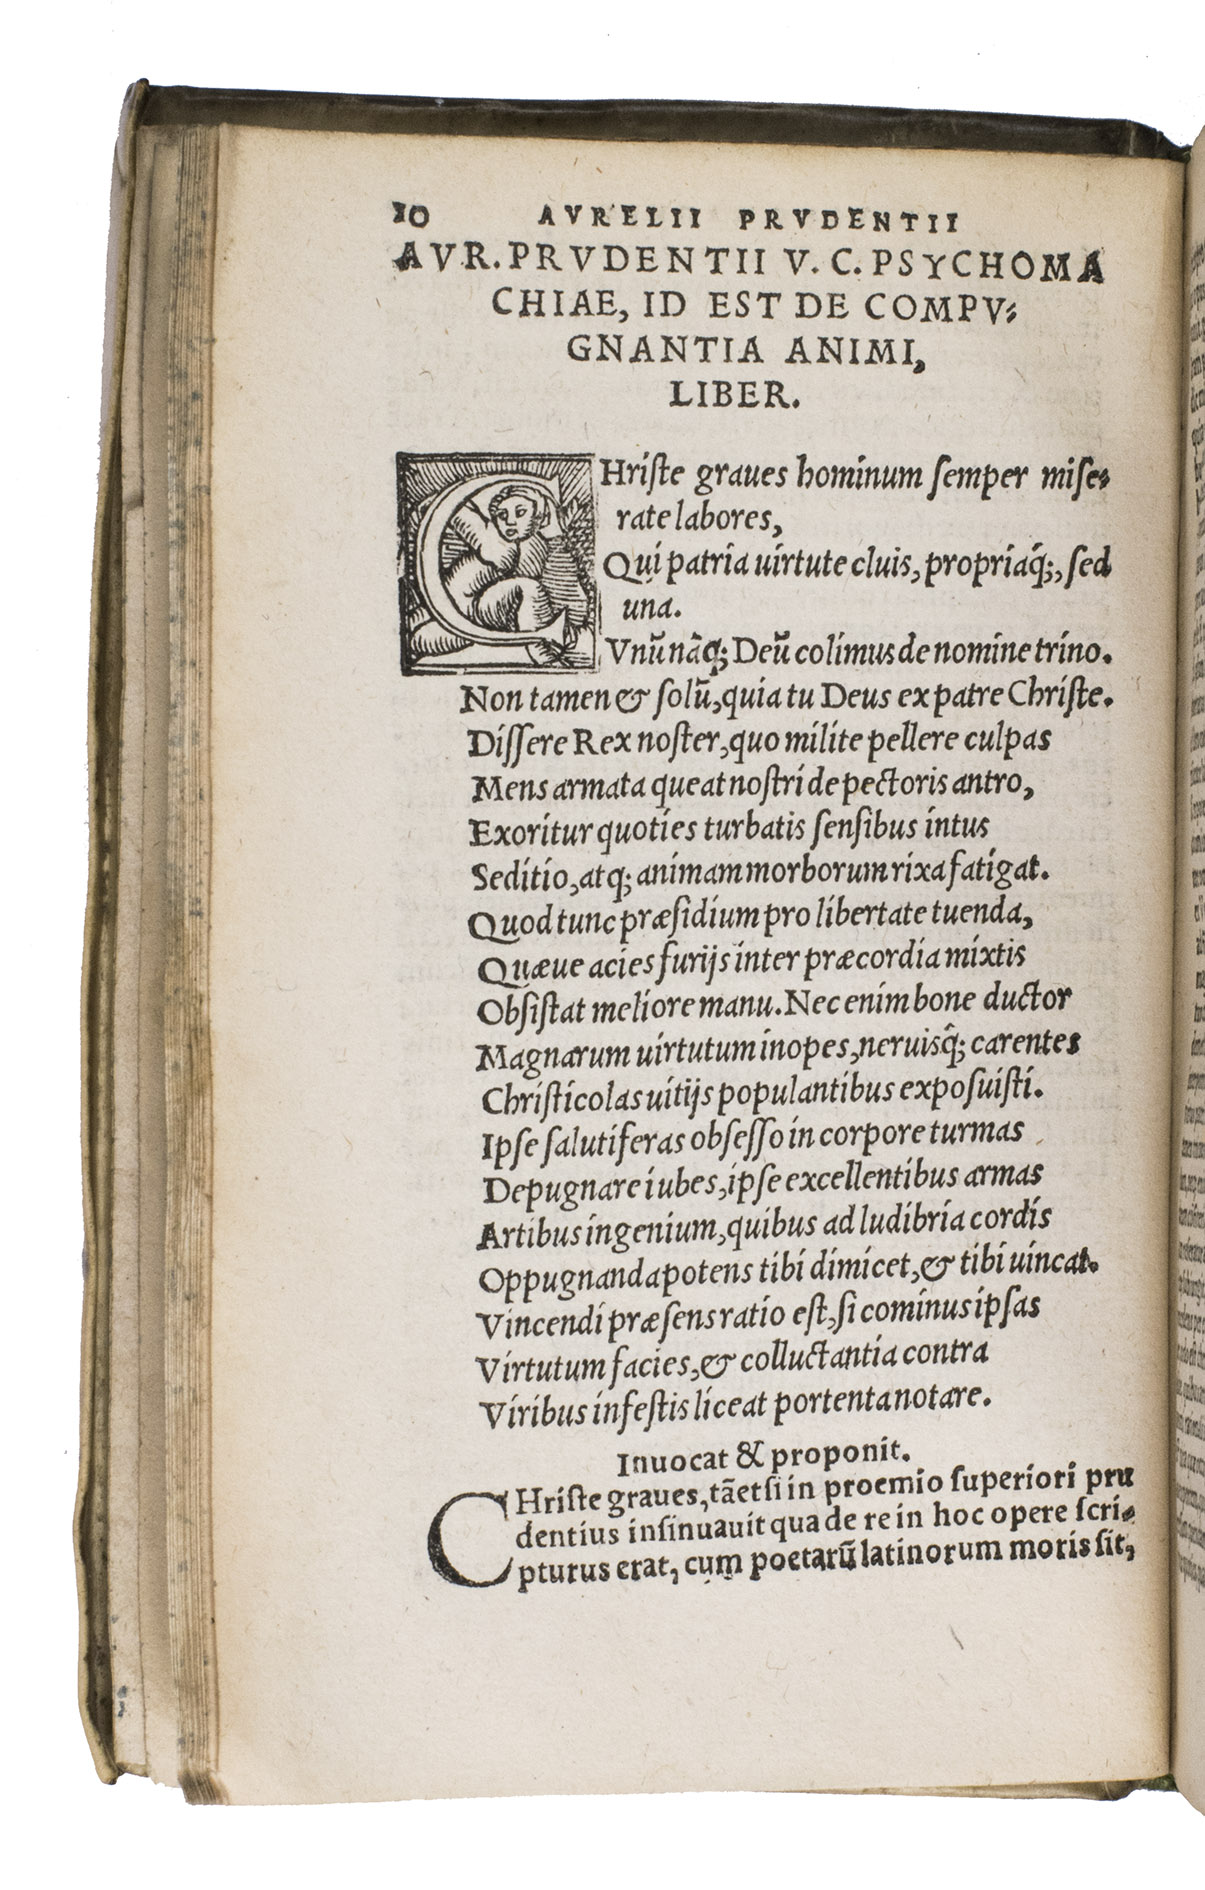 10 AVRELII PRVDENTII
AVR. PRVDENTII V. C. PSYCHOMA
CHIAE, ID EST DE COMPV⸗
GNANTIA ANIMI,
LIBER.
CHriſte graues hominum ſemper miſe⸗
rate labores,
Qui patria uirtute cluis, propriaq́;, ſed
una.
Vnũ nãq; Deũ colimus de nomine trino.
Non tamen & ſolũ, quia tu Deus ex patre Chriſte.
Diſſere Rex noſter, quo milite pellere culpas
Mens armata queat noſtri de pectoris antro,
Exoritur quoties turbatis ſenſibus intus
Seditio, atq; animam morborum rixa fatigat.
Quod tunc præſidium pro libertate tuenda,
Quæue acies furijs inter præcordia mixtis
Obſiſtat meliore manu. Nec enim bone ductor
Magnarum uirtutum inopes, neruisq̂; carentes
Chriſticolas uitijs populantibus expoſuiſti.
Ipſe ſalutiferas obſeſſo in corpore turmas
Depugnare iubes, ipſe excellentibus armas
Artibus ingenium, quibus ad ludibria cordis
Oppugnanda potens tibi dimicet, & tibi uincat.
Vincendi præſens ratio eſt, ſi cominus ipſas
Virtutum facies, & colluctantia contra
Viribus infeſtis liceat portenta notare.
Inuocat & proponit.
CHriſte graues, tãetſi in proemio ſuperiori pru
dentius inſinuauit qua de re in hoc opere ſcri⸗
pturus erat, cum poetarũ latinorum moris ſit,